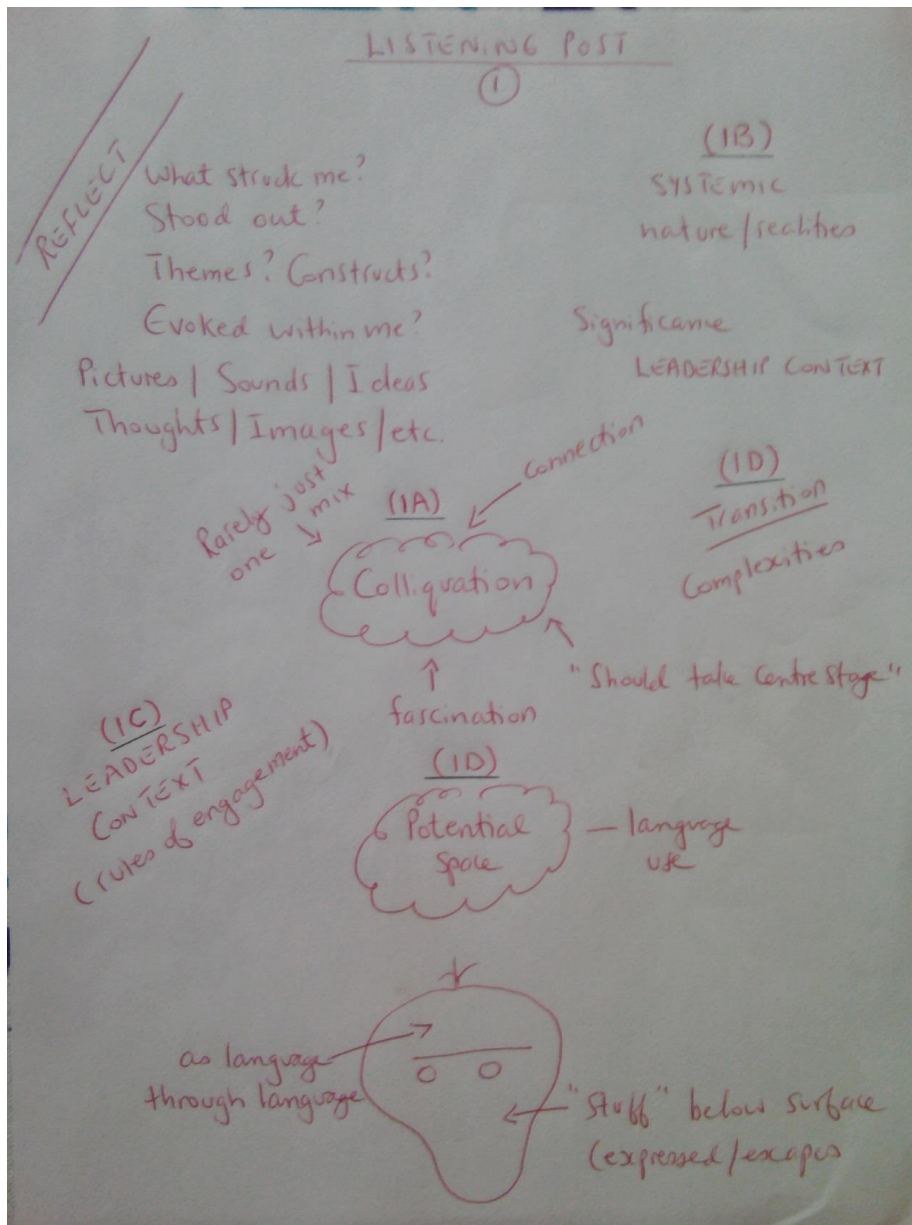 LISTENING POST
1
REFLECT
What struck me?
Stood out?
Themes? Constructs?
Evoked within me?
Pictures / Sounds / Ideas
Thoughts / Images / etc.
(1B)
SYSTEMIC
nature/realities
Significance
LEADERSHIP CONTEXT
Rarely just
one mix
(1A)
Colliquation
Connection
"Should take centre stage"
fascination
(1D)
Transition
Complexities
(1C)
LEADERSHIP
CONTEXT
(rules of engagement)
(1D)
Potential
Space
— language
use
as language
through language
"Stuff" below surface
(expressed/escapes